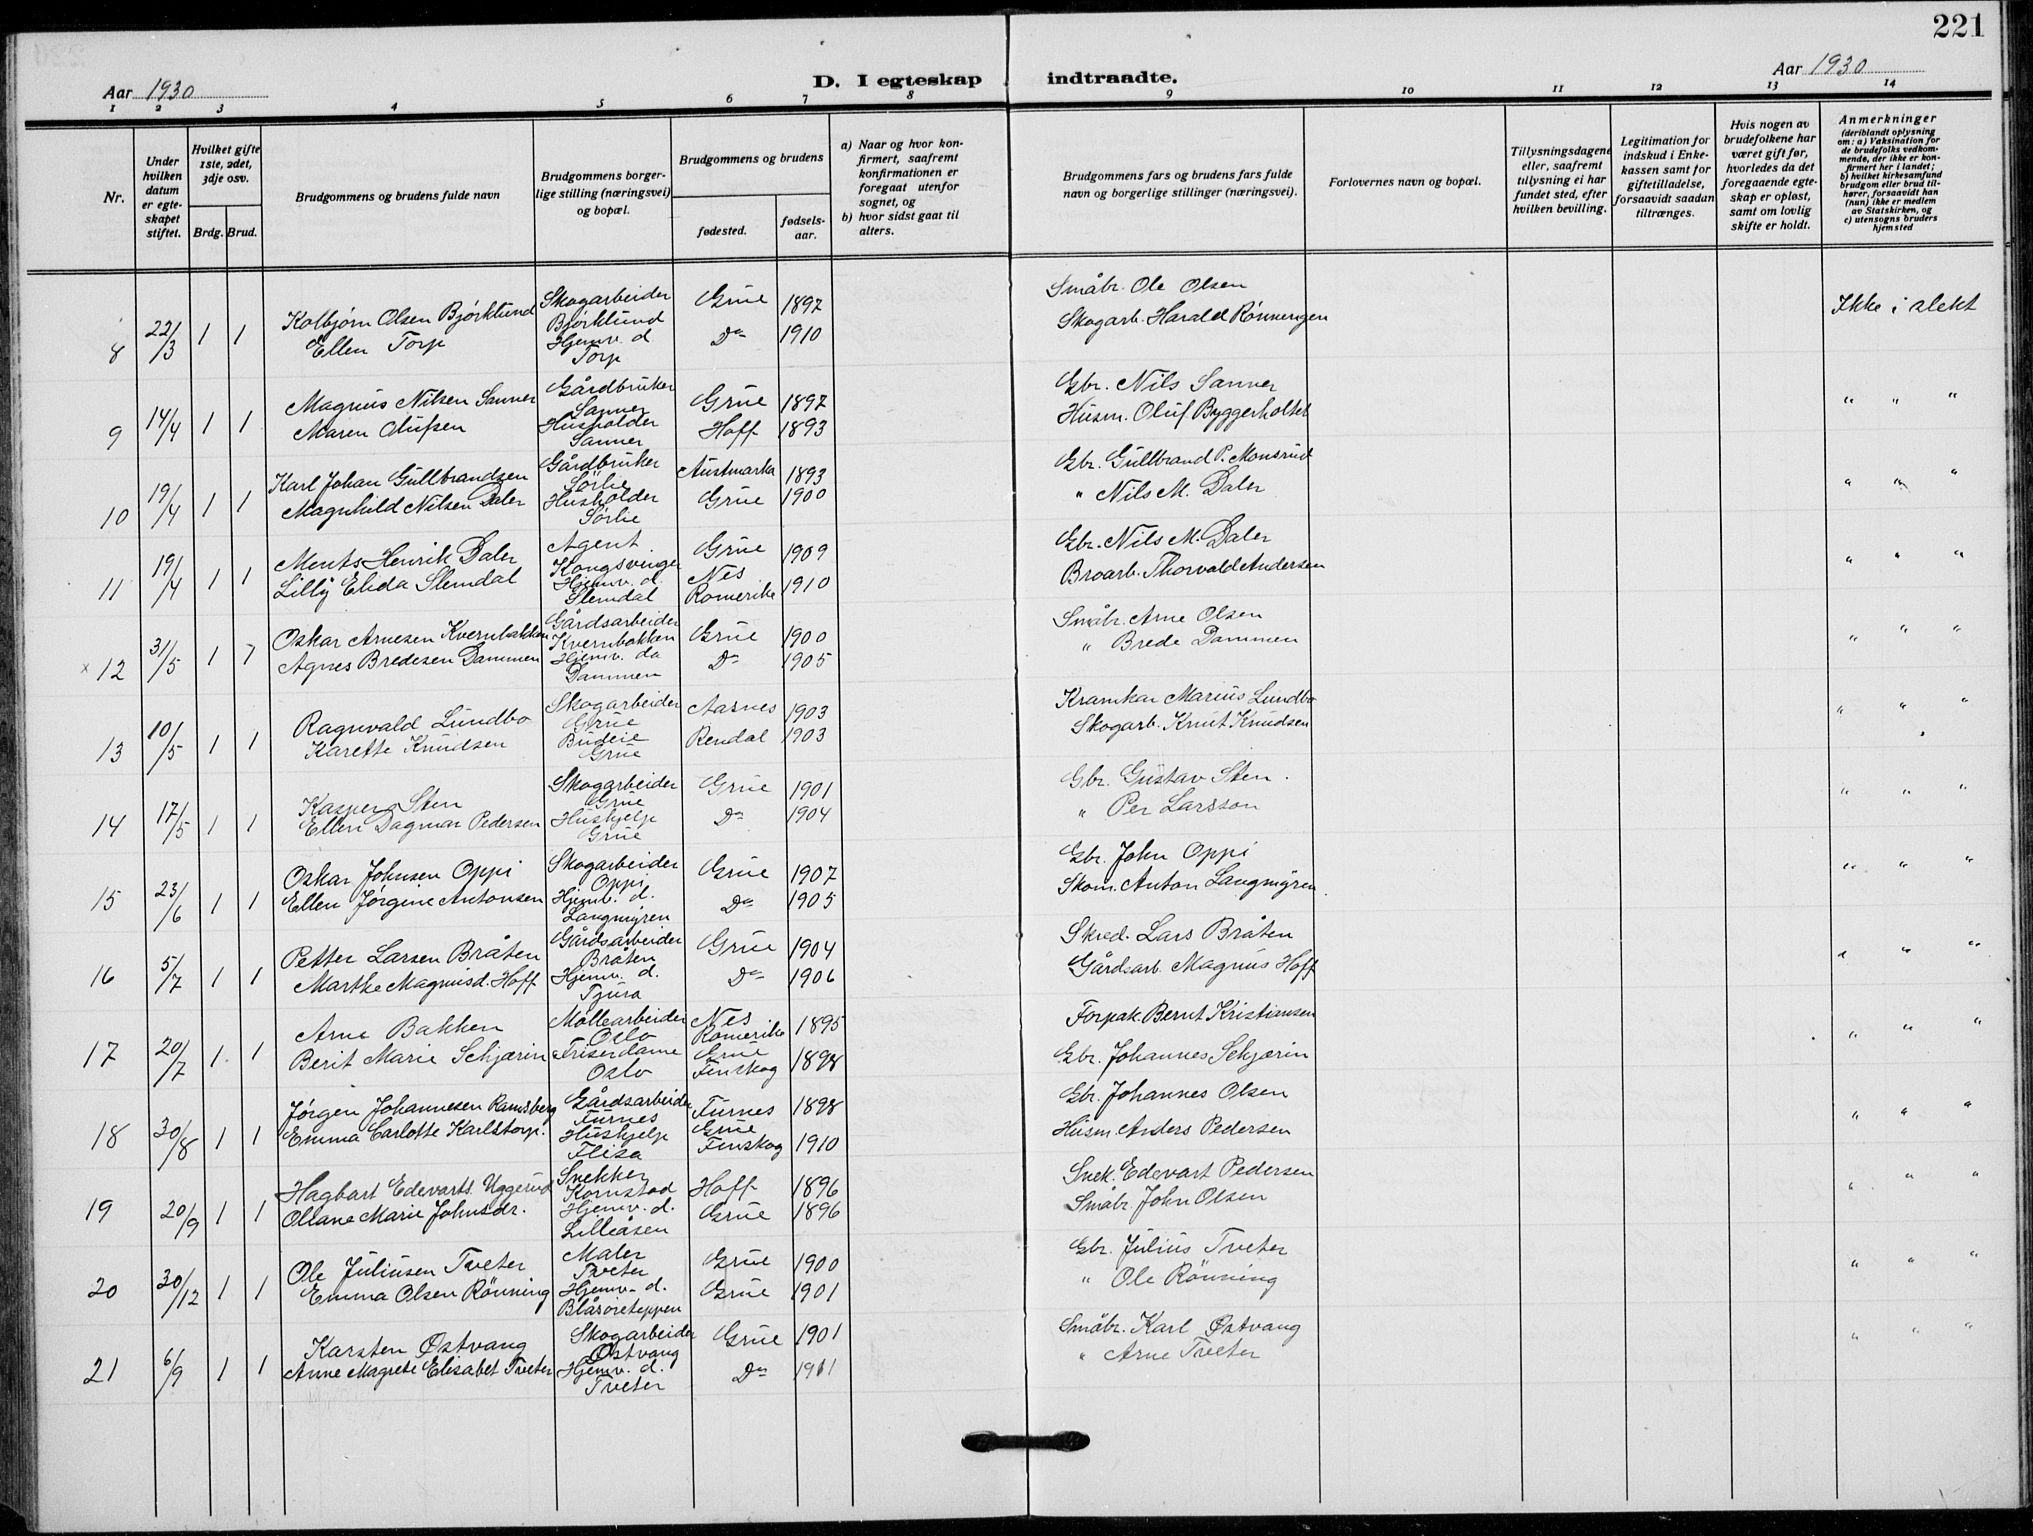 221
Aar 1930
D. I egteskap indtraadte.
Aar 1930
1 2 3 4 5 6 7 8 9 10 11 12 13 14
Nr.
Under hvilken datum er egteskapet stiftet.
Hvilket gifte 1ste, 2det, 3dje osv.
Brdg. Brud.
Brudgommens og brudens fulde navn
Brudgommens borgerlige stilling (næringsvei) og bopæl.
Brudgommens og brudens
fødested.
fødselsaar.
a) Naar og hvor konfirmert, saafremt konfirmationen er foregaat utenfor sognet, og
b) hvor sidst gaat til alters.
Brudgommens fars og brudens fars fulde navn og borgerlige stillinger (næringsvei).
Forlovernes navn og bopæl.
Tillysningsdagene eller, saafremt tillysning ei har fundet sted, efter hvilken bevilling.
Legitimation for indskud i Enkekassen samt for giftetilladelse, forsaavidt saadan tiltrænges.
Hvis nogen av brudefolkene har været gift før, hvorledes da det foregaaende egteskap er opløst, samt om lovlig skifte er holdt.
Anmerkninger
(deriblandt oplysning om: a) Vaksination for de brudefolks vedkommende, der ikke er konfirmert her i landet; b) hvilket kirkesamfund brudgom eller brud tilhører, forsaavidt han (hun) ikke er medlem av Statskirken, og c) utensogns bruders hjemsted
8 22/3 1 1 Kolbjørn Olsen Bjørklund Skogarbeider Bjørklund Grue 1897 Småbr. Ole Olsen Ikke i slekt
Ellen Torp Hjemv. d Torp Do 1910 Skogarb. Harald Rønningen
9 14/4 1 1 Magnus Nilsen Sanner Gårdbruker Sanner Grue 1897 Gbr. Nils Sanner " " "
Maren Olufsen Husholder Sanner Hoff 1893 Husm. Oluf Byggerholtet
10 19/4 1 1 Karl Johan Gullbrandsen Gårdbruker Sørlie Austmarka 1893 Gbr. Gullbrand P. Monsrud " " "
Magnhild Nilsen Daler Husholder Sørlie Grue 1900 " Nils M. Daler
11 19/4 1 1 Ments Henrik Daler Agent Kongsvinge Grue 1909 Gbr. Nils M. Daler " " "
Lilly Elida Slemdal Hjemv. d. Slemdal Nes Romerike 1910 Broarb. Thorvald Andersen
x 12 31/5 1 1 Oskar Arnesen Kvernbakken Gårdsarbeider Kvernbakken Grue 1900 Småbr. Arne Olsen " " "
Agnes Bredesen Dammen Hjemv. da Dammen Do 1905 " Brede Dammen
13 10/5 1 1 Ragnvald Lundbo Skogarbeider Grue Aasnes 1903 Kramkar Marius Lundbo " " "
Karette Knudsen Budeie Grue Rendal 1903 Skogarb. Knut Knudsen
14 17/5 1 1 Kasper Sten Skogarbeider Grue Grue 1901 Gbr. Gustav Sten. " " "
Ellen Dagmar Pedersen Hushjelp Grue Do 1904 " Per Larsson
15 23/6 1 1 Oskar Johnsen Oppi Skogarbeider Oppi Grue 1907 Gbr. John Oppi " " "
Ellen Jørgine Antonsen Hjemv. d. Langmyren Do 1905 Skom. Anton Langmyren
16 5/7 1 1 Petter Larsen Bråten Gårdsarbeider Bråten Grue 1904 Skred. Lars Bråten " " "
Marthe Magnusd. Hoff Hjemv. d. Tjura Do 1906 Gårdsarb. Magnus Hoff
17 20/7 1 1 Arne Bakken Møllearbeider Oslo Nes Romerike 1895 Forpak. Bernt Kristiansen " " "
Berit Marie Schjærin Friserdame Oslo Grue Finskog 1898 Gbr. Johannes Schjærin
18 30/8 1 1 Jørgen Johannesen Ramsberg Gårdsarbeider Furnes Furnes 1898 Gbr. Johannes Olsen " " "
Emma Carlotte Karlstorp. Hushjelp Flisa Grue Finskog 1910 Husm. Anders Pedersen
19 20/9 1 1 Hagbart Edevarts. Uggerud Snekker Kornstad Hoff 1896 Snek. Edevart Pedersen " " "
Oliane Marie Johnsdr. Hjemv. d. Lilleåsen Grue 1896 Småbr. John Olsen
20 30/12 1 1 Ole Juliusen Tveter Maler Tveter Grue 1900 Gbr. Julius Tveter " " "
Emma Olsen Rønning Hjemv. d. Blåsoreteppen Grue 1901 " Ole Rønning
21 6/9 1 1 Karsten Østvang Skogarbeider Østvang Grue 1901 Småbr. Karl Østvang " " "
Anne Magrete Elisabet Tveter Hjemv. d. Tveter Do 1911 " Arne Tveter